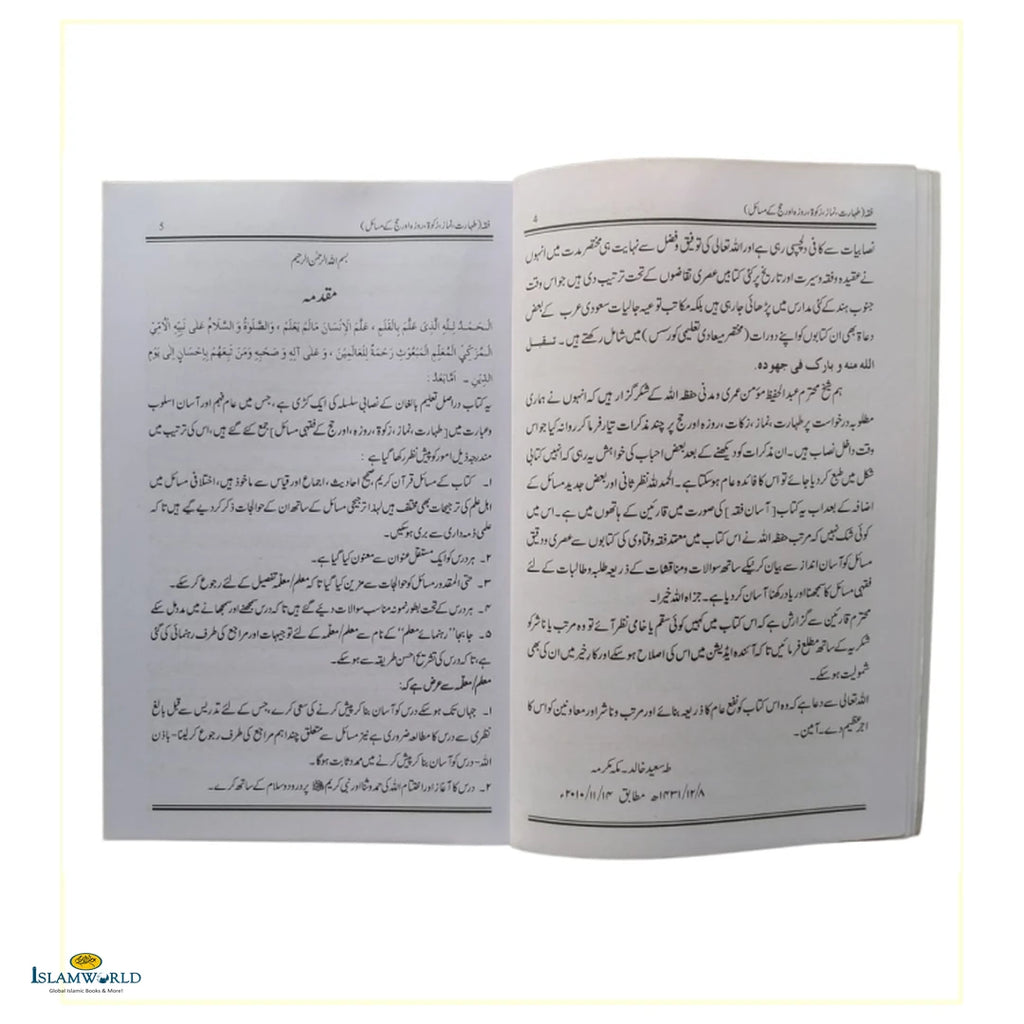 فقہ (طہارت، نماز، زکوۃ، روزہ اور حج کے مسائل)
4
نصابیات سے کافی دلچسپی رہی ہے اور اللہ تعالی کی توفیق و فضل سے نہایت ہی مختصر مدت میں انہوں
نے عقیدہ و فقہ و سیرت اور تاریخ پر کئی کتابیں عصری تقاضوں کے تحت ترتیب دی ہیں جو اس وقت
جنوب ہند کے کئی مدارس میں پڑھائی جارہی ہیں بلکہ مکاتب توعیہ جالیات سعودی عرب کے بعض
دعاۃ بھی ان کتابوں کو اپنے دورات (مختصر میعادی تعلیمی کورسس) میں شامل رکھتے ہیں۔ تقبل
الله منه و بارك في جهوده.
ہم شیخ محترم عبدالحفیظ مؤمن عمری و مدنی حفظہ اللہ کے شکر گزار ہیں کہ انہوں نے ہماری
مطلوبہ درخواست پر طہارت، نماز، زکات، روزہ اور حج پر چند مذکرات تیار فرما کر روانہ کیا جو اس
وقت داخل نصاب ہیں۔ ان مذکرات کو دیکھنے کے بعد بعض احباب کی خواہش یہ رہی کہ انہیں کتابی
شکل میں طبع کردیا جائے تو اس کا فائدہ عام ہوسکتا ہے۔ الحمدللہ نظر ثانی اور بعض جدید مسائل کے
اضافہ کے بعد اب یہ کتاب [آسان فقہ] کی صورت میں قارئین کے ہاتھوں میں ہے۔ اس میں
کوئی شک نہیں کہ مرتب حفظہ اللہ نے اس کتاب میں معتمد فقہ و فتاوی کی کتابوں سے عصری و دقیق
مسائل کو آسان انداز سے بیان کرنیکے ساتھ سوالات و مناقشات کے ذریعہ طلبہ و طالبات کے لئے
فقہی مسائل کا سمجھنا اور یاد رکھنا آسان کردیا ہے۔ جزاہ اللہ خیرا۔
محترم قارئین سے گزارش ہے کہ اس کتاب میں کہیں کوئی سقم یا خامی نظر آئے تو وہ مرتب یا ناشر کو
شکریہ کے ساتھ مطلع فرمائیں تاکہ آئندہ ایڈیشن میں اس کی اصلاح ہوسکے اور کار خیر میں ان کی بھی
شمولیت ہوسکے۔
اللہ تعالی سے دعا ہے کہ وہ اس کتاب کو نفع عام کا ذریعہ بنائے اور مرتب و ناشر اور معاونین کو اس کا
اجر عظیم دے۔ آمین۔
طہ سعید خالد۔ مکہ مکرمہ
۱۴۳۱/۱۲/۸ھ مطابق ۲۰۱۰/۱۱/۱۴ء
فقہ (طہارت، نماز، زکوۃ، روزہ اور حج کے مسائل)
5
بسم اللہ الرحمٰن الرحیم
مقدمہ
الْحَمْدُ لِلّهِ الَّذِى عَلَّمَ بِالْقَلَمِ ، عَلَّمَ الْإِنْسَانَ مَالَمْ يَعْلَمْ ، وَالصَّلٰوةُ وَ السَّلَامُ عَلَى نَبِيِّهِ الْأُمِّيِّ
الْمُزَكِّيِّ الْمُعَلِّمِ الْمَبْعُوْثِ رَحْمَةً لِلْعَالَمِيْنَ ، وَ عَلَى آلِهِ وَ صَحْبِهِ وَمَنْ تَبِعَهُمْ بِإِحْسَانٍ إِلَى يَوْمِ
الدِّيْنِ ۔ اَمَّا بَعْدُ :
یہ کتاب دراصل تعلیم بالغان کے نصابی سلسلہ کی ایک کڑی ہے، جس میں عام فہم اور آسان اسلوب
وعبارت میں [طہارت، نماز، زکوۃ، روزہ، اور حج کے فقہی مسائل] جمع کئے گئے ہیں، اس کی ترتیب میں
مندرجہ ذیل امور کو پیش نظر رکھا گیا ہے :
۱۔ کتاب کے مسائل قرآن کریم، صحیح احادیث، اجماع اور قیاس سے ماخوذ ہیں، اختلافی مسائل میں
اہل علم کی ترجیحات بھی مختلف ہیں لہذا ترجیحی مسائل کے ساتھ ان کے حوالجات ذکر کردیے گیے ہیں تا کہ
علمی ذمہ داری سے بری ہوسکیں۔
۲۔ ہر درس کو ایک مستقل عنوان سے معنون کیا گیا ہے۔
۳۔ حتی المقدور مسائل کو حوالجات سے مزین کیا گیا تا کہ معلم/معلمہ تفصیل کے لئے رجوع کرسکے۔
۴۔ ہر درس کے تحت بطور نمونہ مناسب سوالات دیئے گئے ہیں تا کہ درس سمجھنے اور سمجھانے میں مدد مل سکے
۵۔ جا بجا "رہنمائے معلم" کے نام سے معلم/معلمہ کے لئے توجیہات اور مراجع کی طرف رہنمائی کی گئی
ہے، تا کہ درس کی تشریح احسن طریقہ سے ہوسکے۔
معلم/معلمہ سے عرض ہے کہ:
۱۔ جہاں تک ہوسکے درس کو آسان بنا کر پیش کرنے کی سعی کرے، جس کے لئے تدریس سے قبل بالغ
نظری سے درس کا مطالعہ ضروری ہے نیز مسائل سے متعلق چند اہم مراجع کی طرف رجوع کرلینا- باذن
اللہ- درس کو آسان بنا کر پیش کرنے میں ممد ثابت ہوگا۔
۲۔ درس کا آغاز اور اختتام اللہ کی حمد و ثنا اور نبی کریم ﷺ پر درود و سلام کے ساتھ کرے۔
ISLAMWORLD
Global Islamic Books & More!